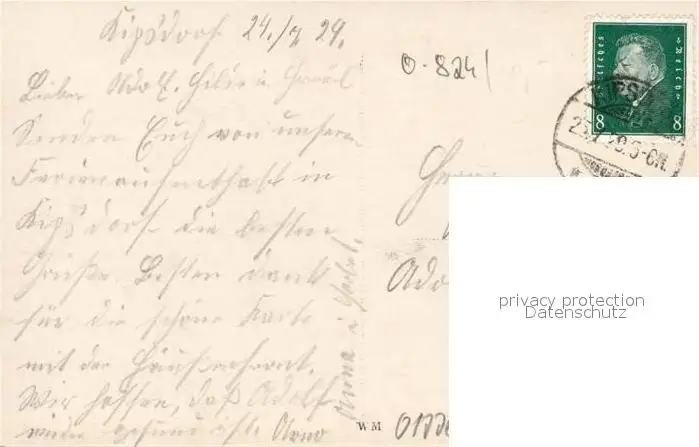 Kipsdorf 24./7 29.
Lieber Adolf, Hilde u.
Senden Euch von unserem
Ferienaufenthalt in
Kipsdorf die besten
Grüße. Besten Dank
für die schöne Karte
mit der
Wir hoffen, daß Adolf
wieder gesund ist. Arno
Anna u.
0-824/
Deutsches Reich
8 8
KIPSD
Herrn
Ado
privacy protection
Datenschutz
WM